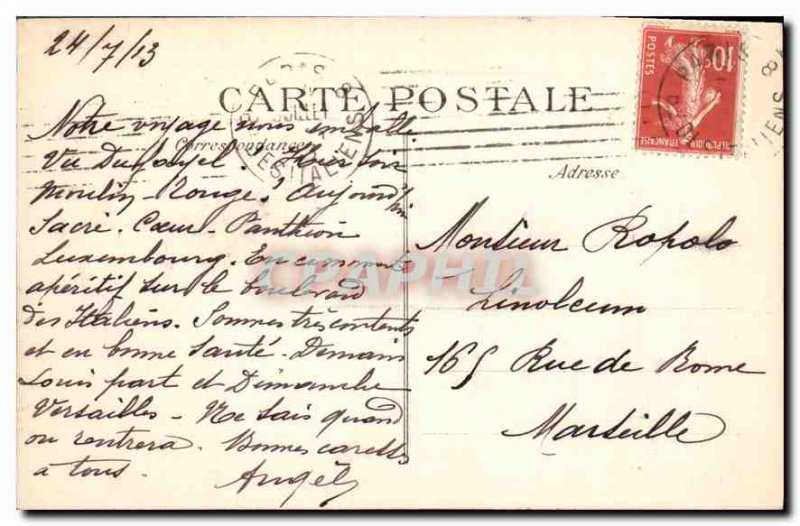 24/7/13
CARTE POSTALE
Correspondance
Adresse
10c
POSTES
REPUBLIQUE FRANÇAISE
ITALIENS
Notre voyage nous
Vu Dufayel. Hier soir
Moulin-Rouge. Aujourd'hui
Sacré. Cœur-Panthéon
Luxembourg. En ce moment
apéritif sur le boulevard
des Italiens. Sommes très contents
et en bonne santé. Demain
Louis part et Dimanche
Versailles - Ne sais quand
on rentrera. Bonnes caresses
à tous. Angèle
Monsieur Ropolo
Linoleum
165 Rue de Rome
Marseille
CPAPHIL